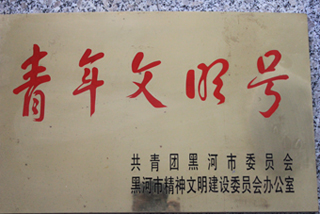 青年文明号
共青团黑河市委员会
黑河市精神文明建设委员会办公室